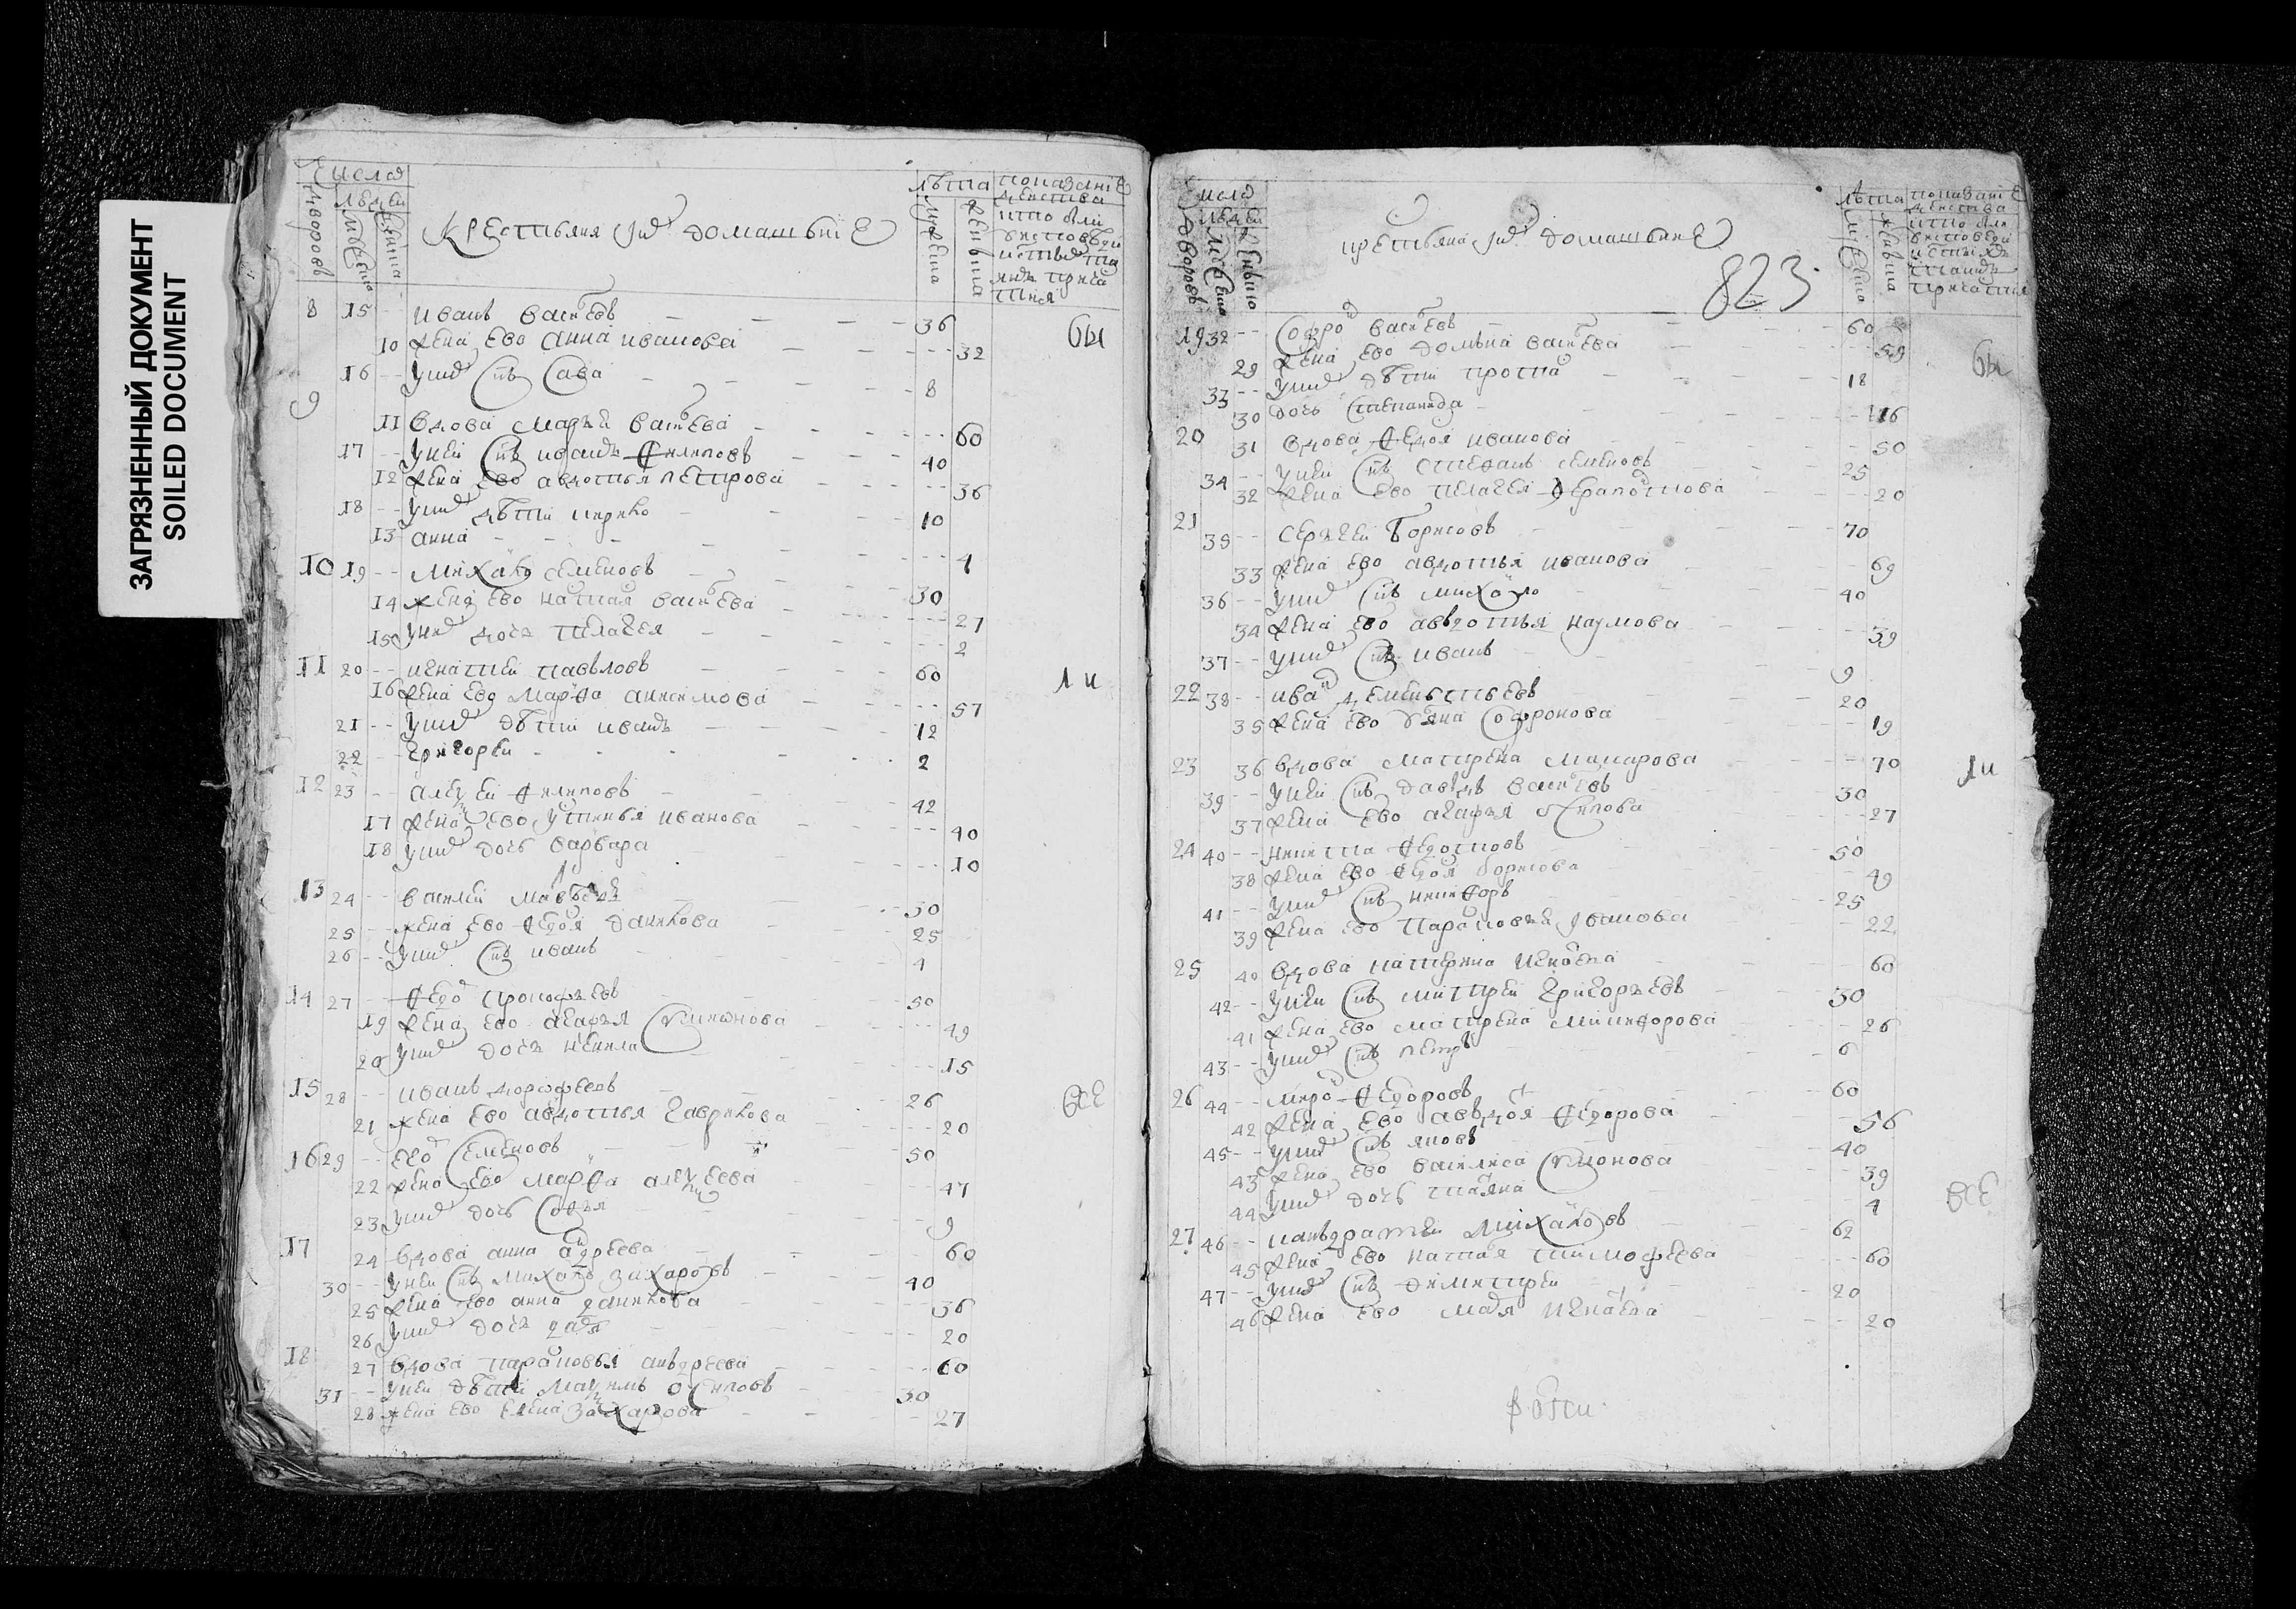 ЗАГРЯЗНЕННЫЙ ДОКУМЕНТ
SOILED DOCUMENT
числа
дворовъ
людей
лѣта
показаніе
крестьяня и ихъ домашьніе
8 15 иванъ васиевъ 36 бы
10 жена ево анна иванова 32
16 у нихъ снъ сава 8
9
11 вдова марья васиева 60
17 у неи снъ иванъ филиповъ 40
12 жена ево авдотья петрова 36
18 у нихъ дѣти кирило 10
13 анна 4
10 19 михаило семеновъ 30
14 жена ево наталя васиева 27
15 у них дочь пелагея 2
11 20 игнатеи павьловъ 60 ли
16 жена ево марфа анисимова 57
21 у нихъ дѣти иванъ 12
22 григореи 2
12 23 алеѯеи филиповъ 42
17 жена ево устинья иванова 40
18 у нихъ дочь варвара 10
13 24 василеи 30
25 жена ево федоя данилова 25
26 у нихъ снъ иванъ 4
14 27 федо прокофьевъ 50
19 жена ево агафья симионова 49
20 у нихъ дочь ненила 15
15 28 иванъ дорофеевъ 26 все
21 жена ево авдотья гаврилова 20
16 29 семеновъ 50
22 жена ево марфа алеѯеева 47
23 у нихъ дочь софья 9
17 24 вдова анна андреева 60
30 у неи снъ михаило захаровъ 40
25 жена ево анна данилова 36
26 у нихъ дочь 20
18 27 вдова парасковья анъдреева 60
31 у неи дѣти маѯимъ осиповъ 30
28 жена ево елена захарова 27
крестьяня и ихъ домашьние
823
19 32 софро васиевъ 60
29 жена ево домьна васиева 59 бы
33 у нихъ дѣти 18
30 дочь степанида 16
20 31 вдова федоя иванова 50
34 у неи снъ стефанъ семеновъ 25
32 жена ево пелагея ферапотова 20
21 35 сергеи борисовъ 70
33 жена ево авдотья иванова 69
36 у нихъ снъ михаило 40
34 жена ево авьдотья наумова 39
37 у нихъ снъ иванъ 9
22 38 иванъ деменьтьевъ 20
35 жена ево софронова 19
23 36 вдова матрена макарова 70 ли
39 у неи снъ давыдъ васиевъ 30
37 жена ево агафья осипова 27
24 40 никита федотовъ 50
38 жена ево федоя борисова 49
41 у нихъ снъ никифоръ 25
39 жена ево парасковья иванова 22
25 40 вдова катерина игнаева 60
42 у неи снъ митреи григорьевъ 30
41 жена ево матрена никифорова 26
43 у нихъ снъ петръ 6
26 44 миро федоровъ 60
42 жена ево авьдоя федорова 56
45 у нихъ снъ яковъ 40
43 жена ево василиса симонова 39
44 у нихъ дочь татяна 4 все
27 46 канъдратеи михаиловъ 62
45 жена ево наталя тимофеева 60
47 у нихъ снъ димитреи 20
46 жена ево игнаева 20